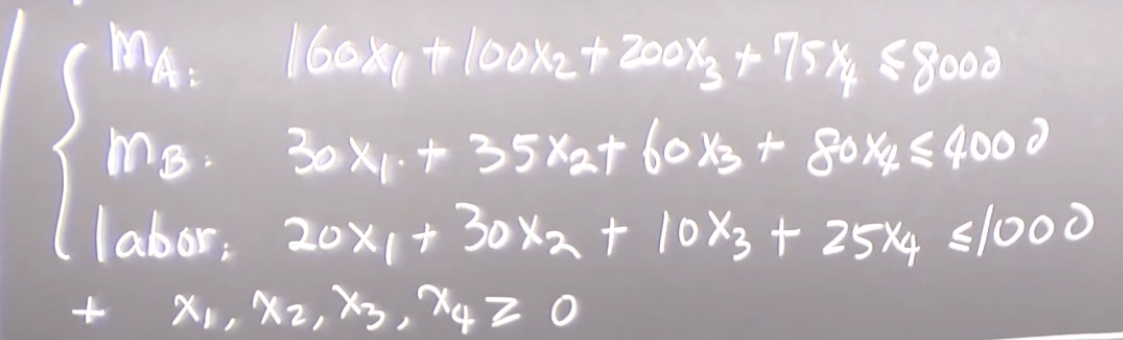 M_A: 160x₁ + 100x₂ + 200x₃ + 75x₄ ≤ 8000
M_B: 30x₁ + 35x₂ + 60x₃ + 80x₄ ≤ 4000
labor: 20x₁ + 30x₂ + 10x₃ + 25x₄ ≤ 1000
+ x₁, x₂, x₃, x₄ ≥ 0